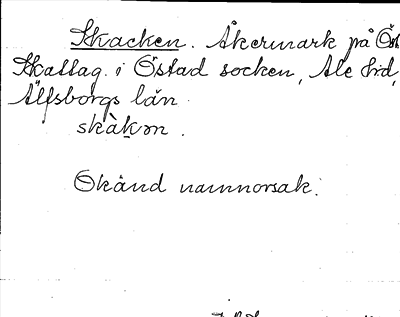 Skacken. Åkermark på Öst
Skattag. i Östad socken, Ale hd,
Älfsborgs län.
skàkən.
Okänd namnorsak.